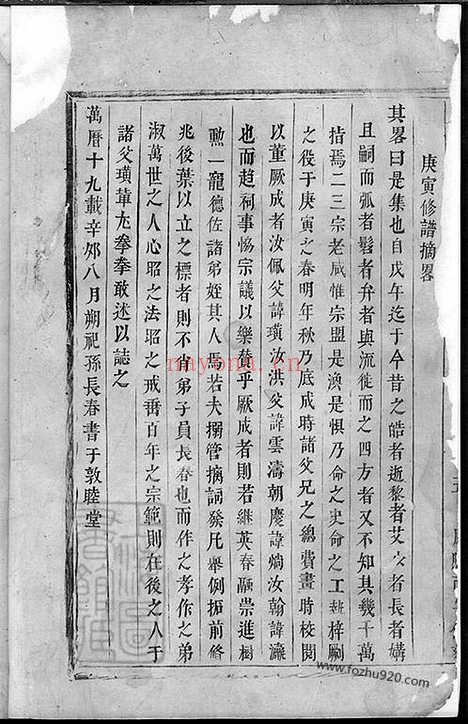 庚寅修譜摘畧
其畧曰是集也自戊午迄于今昔之皓者逝黎者艾少者長者媾
且嗣而孤者髫者弁者與流徙而之四方者又不知其幾千萬
指焉二三宗老咸惟宗盟是渙是惧乃命之史命之工梓劂
之役于庚寅之春明年秋乃底成時諸父兄之總費畫時校閱
以董厥成者汝佩父諱璜汝洪父諱雲濤朝慶諱熵汝翰諱瀛
也而趋祠事恊宗議以樂贊乎厥成者則若継英春融崇進樹
勲一寵德佐諸弟姪其人焉若夫搦管摛詞發凡舉例振前脩
兆後葉以立之標者則不肖弟子員長春也而作之孝作之弟
淑萬世之人心昭之法昭之戒畨百年之宗範則在後之人于
諸父璜軰尤拳拳敢述以誌之
萬曆十九載辛夘八月朔祀孫長春書于敦睦堂
nayona.cn
www.fozhu920.com